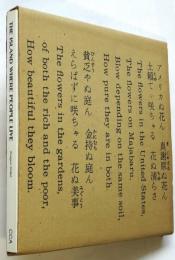 THE ISLAND WHERE PEOPLE LIVE
CCCA
アメリカぬ花ん 真謝原ぬ花ん
土頼てぃ咲ちゅる 花ぬ清らさ
The flowers in the United States,
The flowers on Majabaru,
Blow depending on the same soil,
How pure they are in both.
貧乏ぬ庭ん 金持ぬ庭ん
えらばずに咲ちゃる 花ぬ美事
The flowers in the gardens,
of both the rich and the poor,
How beautiful they bloom.